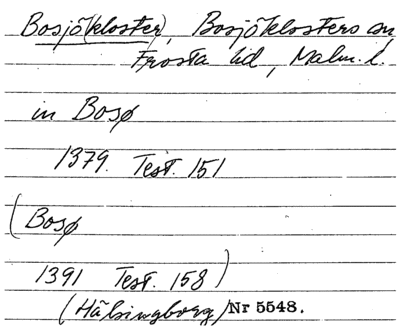 Bosjö(kloster), Bosjöklosters sn,
Frosta hd, Malm. l.
in Bosø
1379. Test. 151
(Bosø
1391 Test. 158)
(Hälsingborg) Nr 5548.